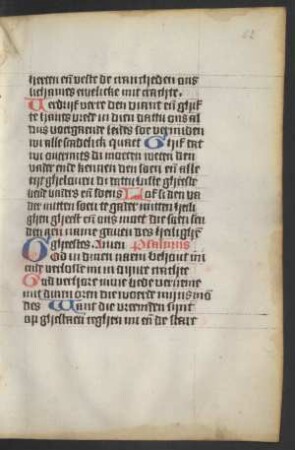 62
herten en̄ veste de crancheden ons
lichames ewelicke mit crachte.
Verdrijf verre den viant en̄ ghif
te hants vrede in dien dattu ons al
dus voergaende leides soe vermiden
wi alle scadelick quaet Ghif dat
wi ouermits di moeten weten den
vader ende kennen den soen en̄ alle
tijt ghelouen di gheeste
beide vaders en̄ soens Lof si den va
der mitten soen te gader mitten heili
ghen gheest en̄ ons moet die soen sen
den name gauen des heilighs
Gheestes. Amen Psalmus
God in dinen naem behout mi
ende verlosse mi in dijnre crachte
God verhore mine bede verneme
mit dinen oren die woerde mijns mō
des Want die vreemden sijnt
op ghestaen teghen mi en̄ de starc